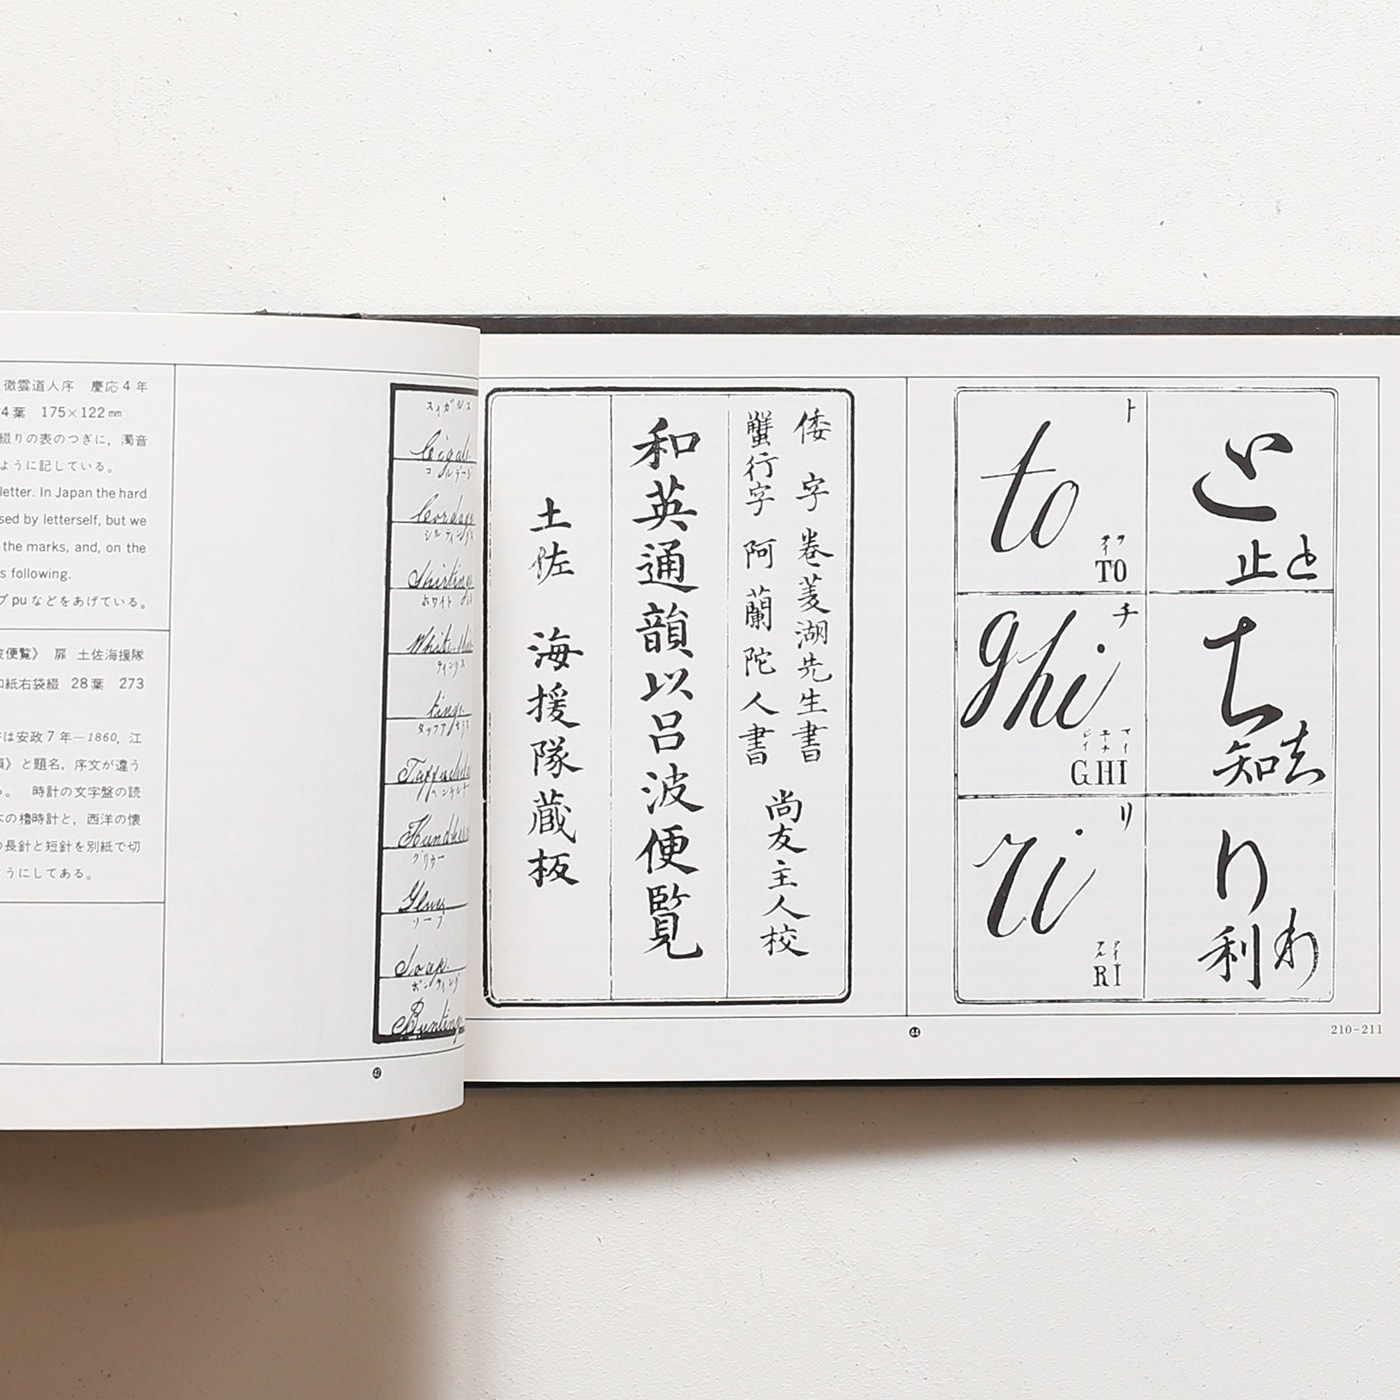 徹雲道人序　慶応4年
4葉　175×122㎜
綴りの表のつぎに，濁音
ように記している。
letter. In Japan the hard
sed by letterself, but we
the marks, and, on the
s following.
プpuなどをあげている。
便覧》　扉　土佐海援隊
和紙右袋綴　28葉　273
は安政7年—1860，江
》と題名，序文が違う
。　時計の文字盤の読
の櫓時計と，西洋の懐
の長針と短針を別紙で切
うにしてある。
コルデーシ
ホワイト
ソープ
Soap.
Bunting
42
倭字 巻菱湖先生書
蟹行字 阿蘭陀人書
尚友主人校
和英通韻以呂波便覧
土佐 海援隊蔵板
ト
to
TO
と
止 と
チ
ghi
GHI
ち
知
リ
ri
RI
り
利
44
210-211